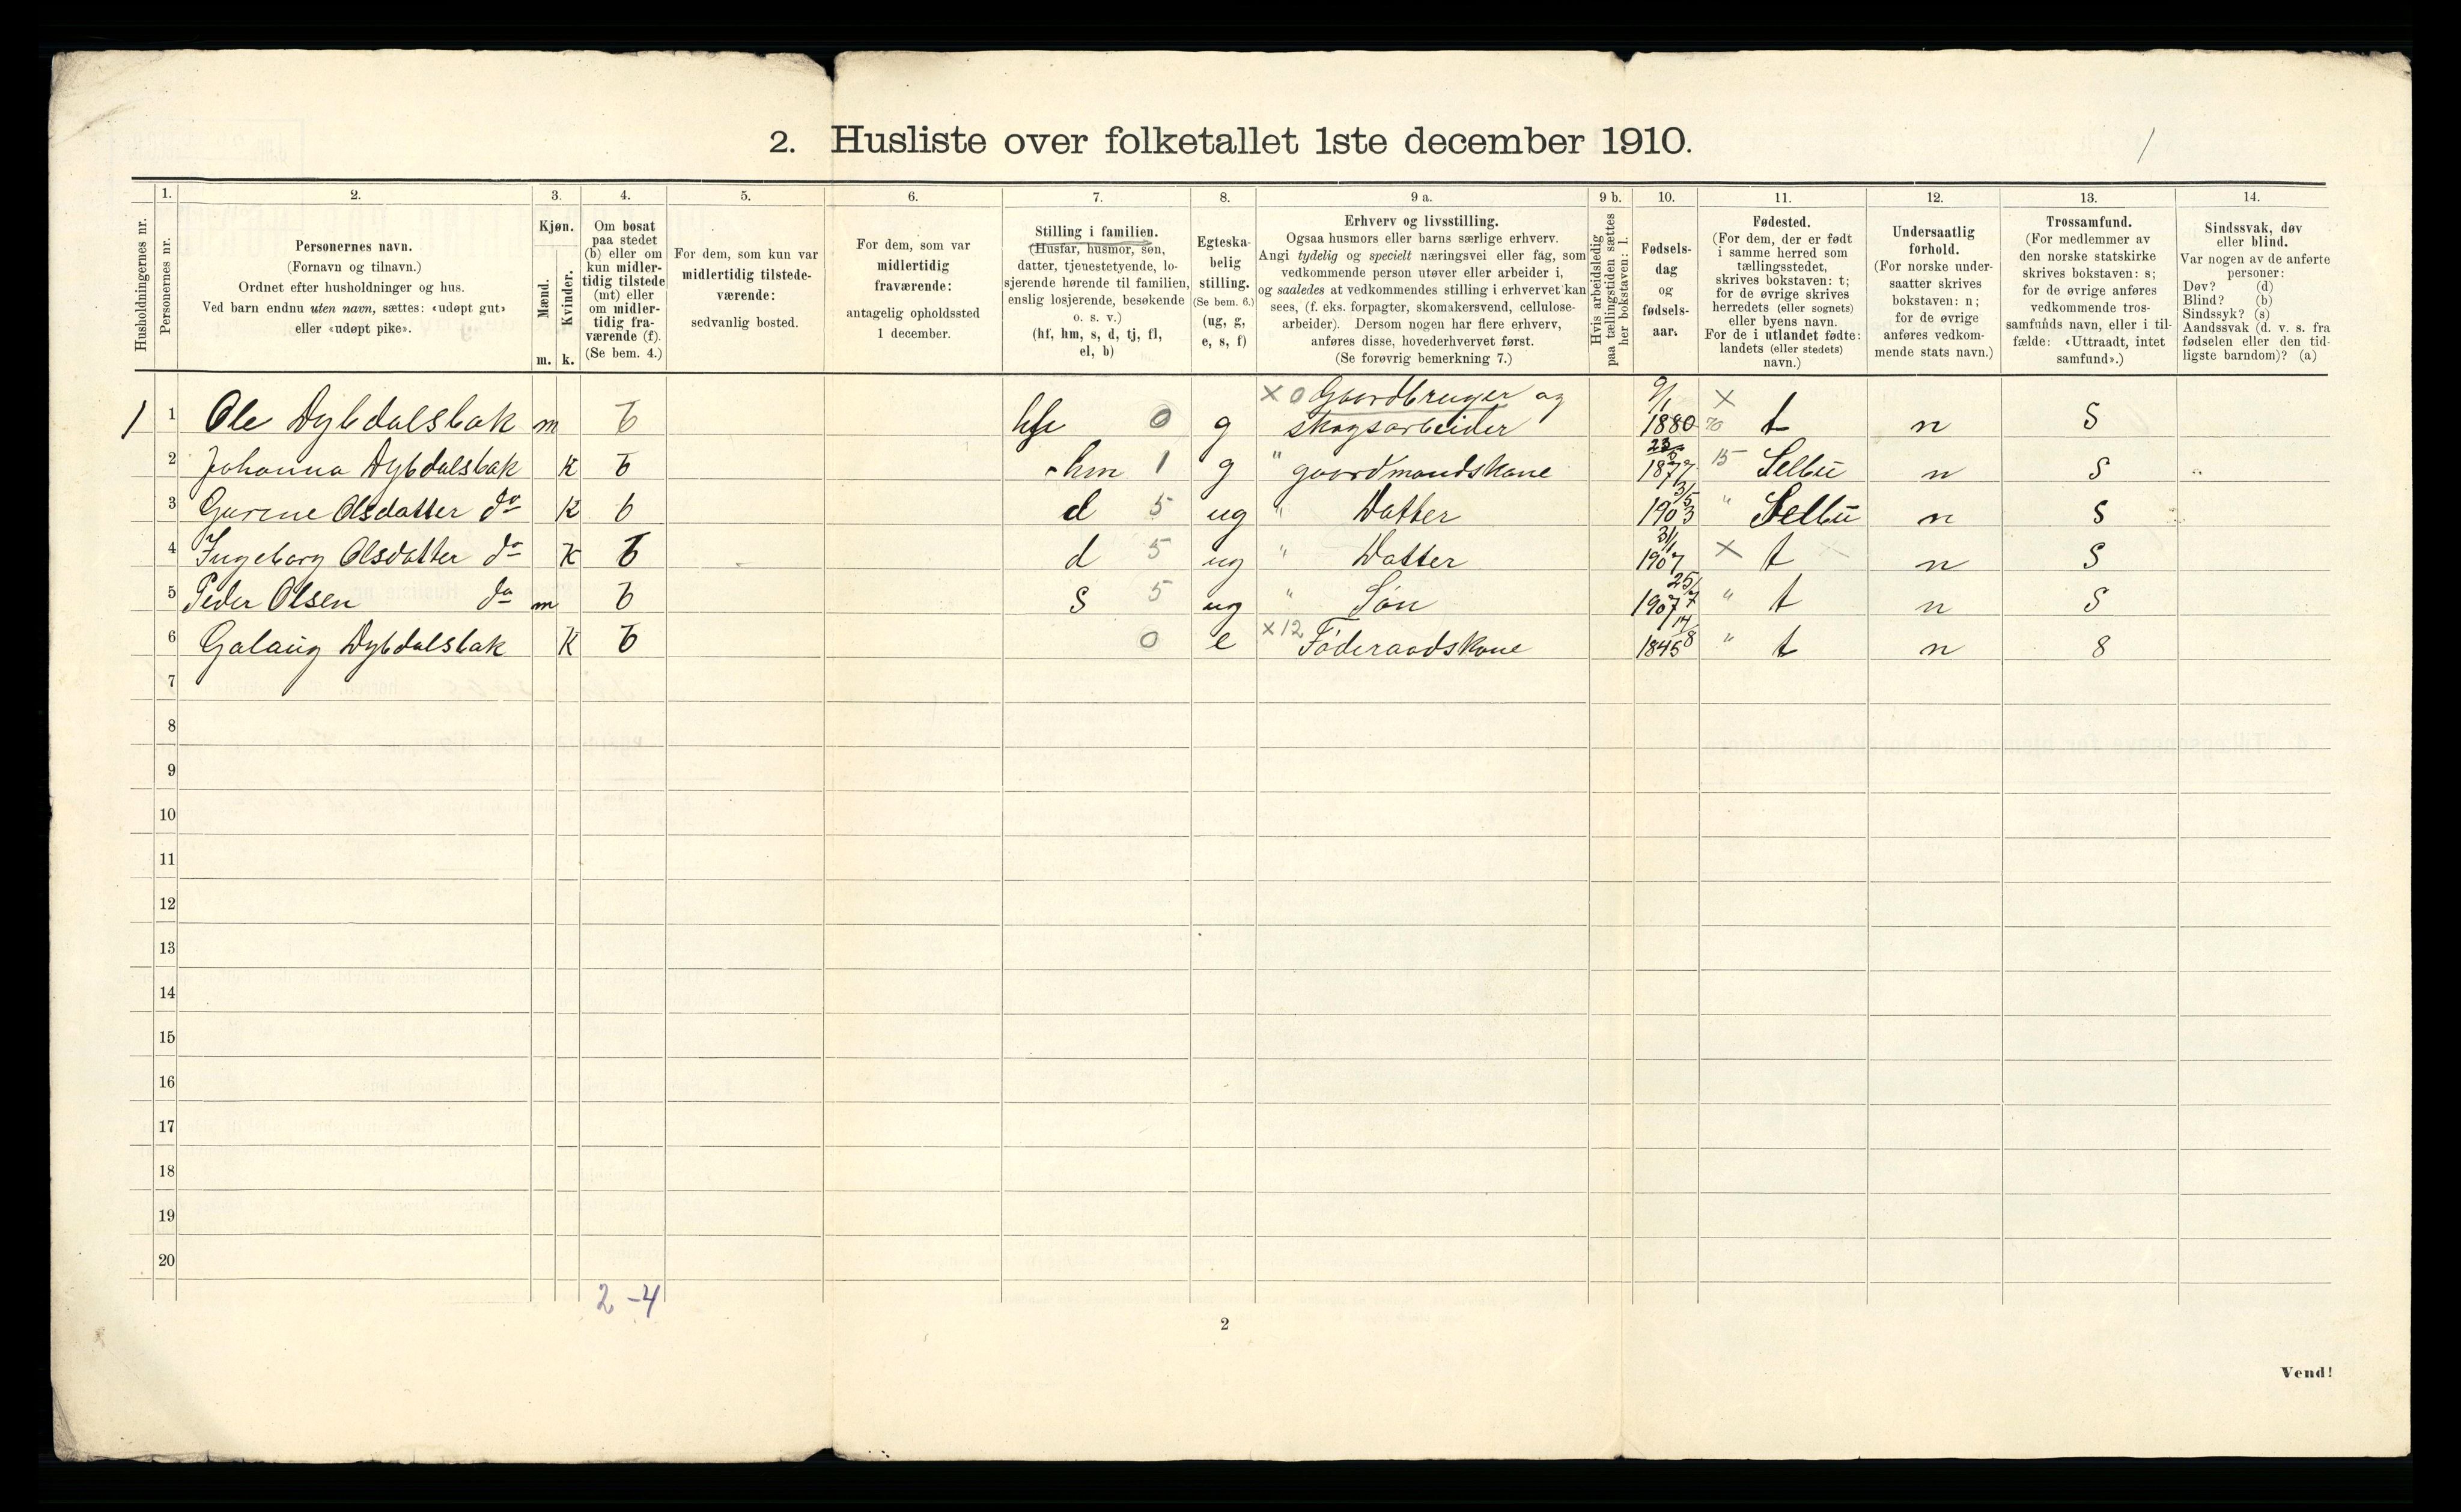 2. Husliste over folketallet 1ste december 1910.
/
1. 2. 3. 4. 5. 6. 7. 8. 9 a. 9 b. 10. 11. 12. 13. 14.
Husholdningernes nr.
Personernes nr.
Personernes navn.
(Fornavn og tilnavn.)
Ordnet efter husholdninger og hus.
Ved barn endnu uten navn, sættes: «udøpt gut»
eller «udøpt pike».
Kjøn.
Mænd.
Kvinder.
m. k.
Om bosat
paa stedet
(b) eller om
kun midler-
tidig tilstede
(mt) eller
om midler-
tidig fra-
værende (f).
(Se bem. 4.)
For dem, som kun var
midlertidig tilstede-
værende:
sedvanlig bosted.
For dem, som var
midlertidig
fraværende:
antagelig opholdssted
1 december.
Stilling i familien.
(Husfar, husmor, søn,
datter, tjenestetyende, lo-
sjerende hørende til familien,
enslig losjerende, besøkende
o. s. v.)
(hf, hm, s, d, tj, fl,
el, b)
Egteska-
belig
stilling.
(Se bem. 6.)
(ug, g,
e, s, f)
Erhverv og livsstilling.
Ogsaa husmors eller barns særlige erhverv.
Angi tydelig og specielt næringsvei eller fag, som
vedkommende person utøver eller arbeider i,
og saaledes at vedkommendes stilling i erhvervet kan
sees, (f. eks. forpagter, skomakersvend, cellulose-
arbeider). Dersom nogen har flere erhverv,
anføres disse, hovederhvervet først.
(Se forøvrig bemerkning 7.)
Hvis arbeidsledig
paa tællingstiden sættes
her bokstaven: l.
Fødsels-
dag
og
fødsels-
aar.
Fødested.
(For dem, der er født
i samme herred som
tællingsstedet,
skrives bokstaven: t;
for de øvrige skrives
herredets (eller sognets)
eller byens navn.
For de i utlandet fødte:
landets (eller stedets)
navn.)
Undersaatlig
forhold.
(For norske under-
saatter skrives
bokstaven: n;
for de øvrige
anføres vedkom-
mende stats navn.)
Trossamfund.
(For medlemmer av
den norske statskirke
skrives bokstaven: s;
for de øvrige anføres
vedkommende tros-
samfunds navn, eller i til-
fælde: «Uttraadt, intet
samfund».)
Sindssvak, døv
eller blind.
Var nogen av de anførte
personer:
Døv? (d)
Blind? (b)
Sindssyk? (s)
Aandssvak (d. v. s. fra
fødselen eller den tid-
ligste barndom)? (a)
1 1 Ole Dybdalsbak m b hf 0 g × 0 Gaardbruger og skogsarbeider 9/1 1880 × t n S
2 Johanna Dybdalsbak K b hm 1 g " gaardmandskone 1877 15 Selbu n S
3 Gurine Olsdatter do K b d 5 ug " Datter 31/5 1903 " Selbu n S
4 Ingeborg Olsdatter do K b d 5 ug " Datter 31/1 1907 × t n S
5 Peder Olsen do m b S 5 ug " Søn 25/7 1907 " t n S
6 Gølaug Dybdalsbak K b 0 e ×12 Føderaadskone 14/8 1845 " t n S
7
8
9
10
11
12
13
14
15
16
17
18
19
20
2 - 4
2
Vend!